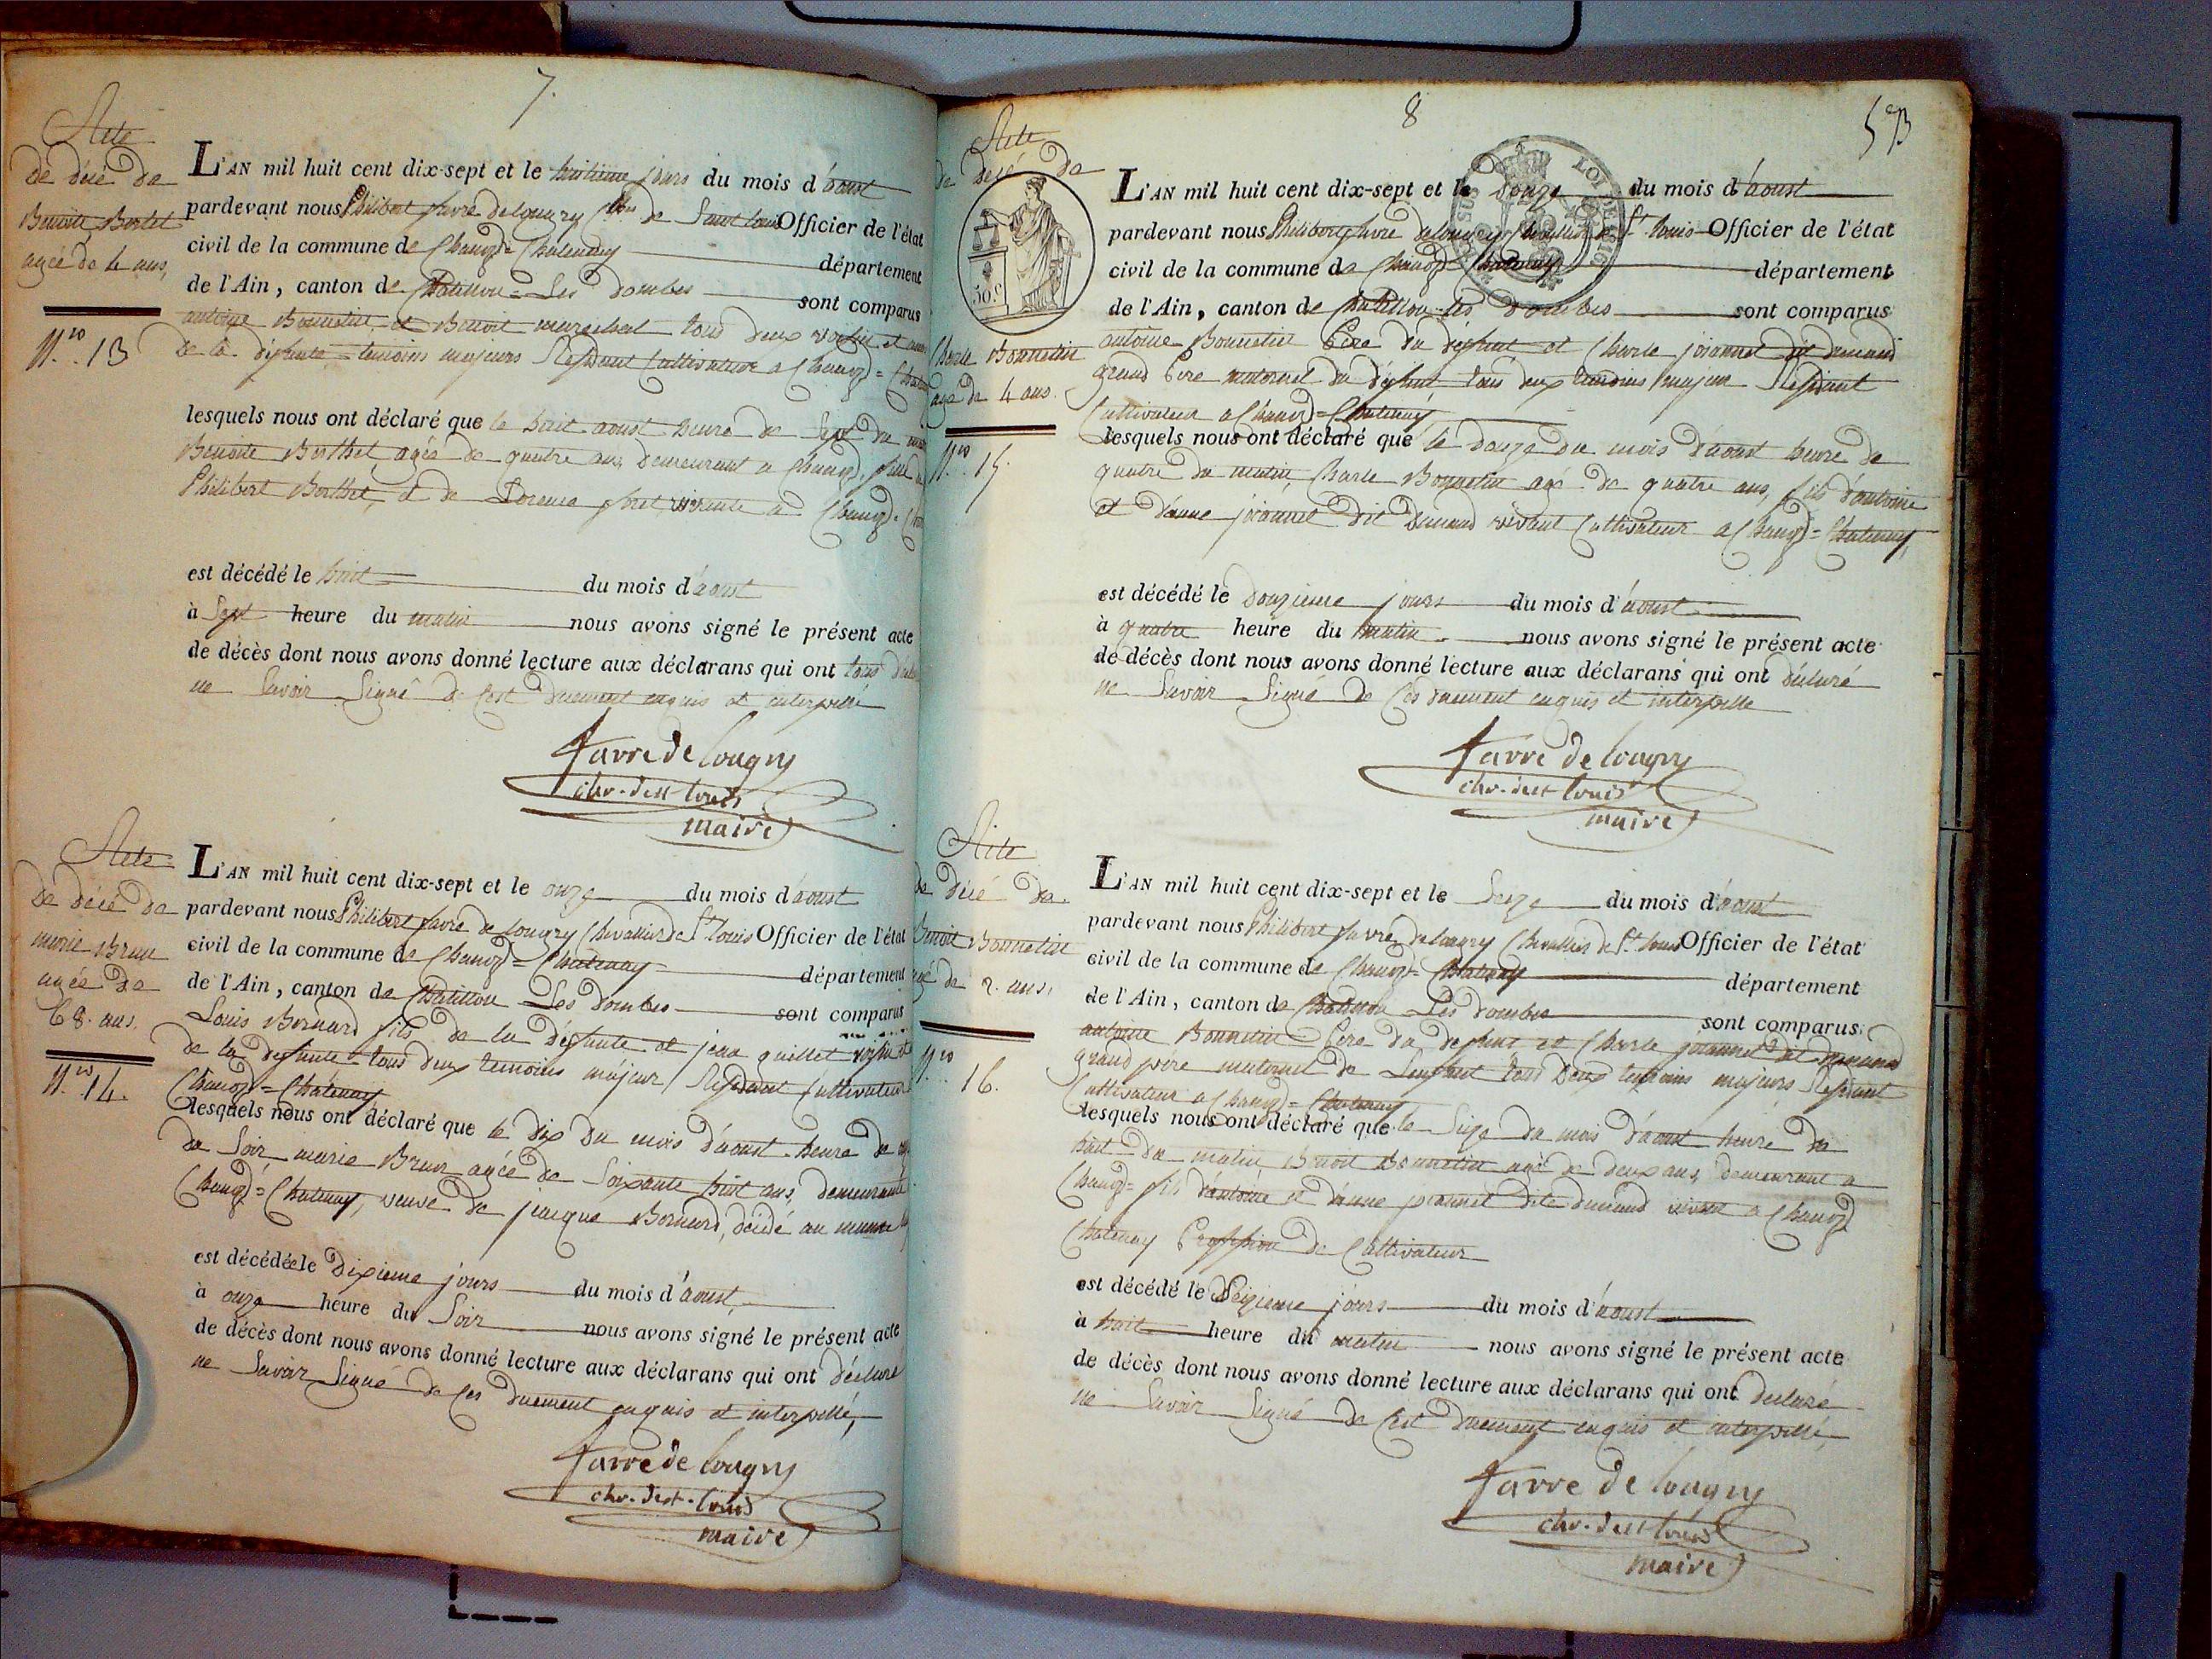 7.
Acte
de décé de
Benoite Bertet
agée de 4 ans,
N.ro 13
L'AN mil huit cent dix-sept et le huitieme jours du mois d'aoust
pardevant nous Philibert favre delougry de Saint Louis Officier de l'état
civil de la commune de Chanoz=Chatenay département
de l'Ain, canton de Chatillon=Les dombes sont comparus
antoine Bonnetin et Benoit marechal tous deux voisin et
de la défunte temoins majeurs Residant Cultivateur a Chanoz=
lesquels nous ont déclaré que le huit aoust heure de sept du
Benoite Berthet agée de quatre ans demeurant a Chanoz, fille
Philibert Berthet, et de vivante a Chanoz=
est décédé le huit du mois d'aoust
à Sept heure du matin nous avons signé le présent acte
de décès dont nous avons donné lecture aux déclarans qui ont tous
ne Savoir Signé de Cest duement enquis et interpellé
favre de lougry
chr. de st louis
maire
Acte
de décé de
marie Brun
agée de
68. ans.
N.ro 14.
L'AN mil huit cent dix-sept et le onze du mois d'aoust
pardevant nous Philibert favre de lougry Chevallier de St Louis Officier de l'état
civil de la commune de Chanoz=Chatenay département
de l'Ain, canton de Chatillon Les dombes sont comparus
Louis Bernard fils de la défunte et jean guillet voisin
de la defunte tous deux temoins majeur Residant Cultivateur
Chanoz=Chatenay
lesquels nous ont déclaré que le dix du mois d'aoust heure de
du Soir marie Brun agée de Soixante huit ans, demeurante
Chanoz=Chatenay, veuve de jacque Bernard, décédé au meme
est décédée le dixieme jours du mois d'aoust,
à onze heure du Soir nous avons signé le présent acte
de décès dont nous avons donné lecture aux déclarans qui ont déclaré
ne Savoir Signé de Ces duement enquis et interpellé,
favre de lougry
chr. de st. louis
maire
8
53
Acte
de decé de
50.c
Charle Bonnetin
agé de 4 ans.
N.ro 15.
L'AN mil huit cent dix-sept et le Douze du mois d'aoust
pardevant nous Philibert favre delougry Chevallier de St. Louis Officier de l'état
civil de la commune de Chanoz=Chatenay département
de l'Ain, canton de Chatillon-les dombes sont comparus
antoine Bonnetin Père du défunt et Charle joiannet dit
grand Père maternel du défunt tous deux temoins majeur Residant
Cultivateur a Chanoz=Chatenay
lesquels nous ont déclaré que le douze du mois d'aoust heure de
quatre du matin, Charle Bonnetin agé de quatre ans, fils d'antoine
et d'anne joiannet dit vivant Cultivateur a Chanoz=Chatenay,
est décédé le Douzieme jours du mois d'aoust
à quatre heure du matin nous avons signé le présent acte
de décès dont nous avons donné lecture aux déclarans qui ont déclaré
ne Savoir Signé de Ces duement enquis et interpelle
favre de lougry
chr. de st louis
maire
Acte
de décé de
Benoit Bonnetin
agé de 2. ans.
N.ro 16.
L'AN mil huit cent dix-sept et le Seize du mois d'aoust
pardevant nous Philibert favre delougry Chevallier de St. Louis Officier de l'état
civil de la commune de Chanoz=Chatenay département
de l'Ain, canton de Chatillon Les dombes sont comparus
antoine Bonnetin Père du defunt et Charle joiannet dit
grand père maternel de Lenfant tous deux temoins majeurs Residant
Cultivateur a Chanoz=Chatenay
lesquels nous ont déclaré que le Seize du mois d'aoust heure de
huit du matin Benoit Bonnetin agé de deux ans, demeurant a
Chanoz= fils d'antoine et d'anne joiannet dite vivant a Chanoz
Chatenay Proffession de Cultivateur
est décédé le Seizieme jours du mois d'aoust
à huit heure du matin nous avons signé le présent acte
de décès dont nous avons donné lecture aux déclarans qui ont declaré
ne Savoir Signé de Cest duement enquis et interpellé,
favre de lougry
chr. de st louis
maire